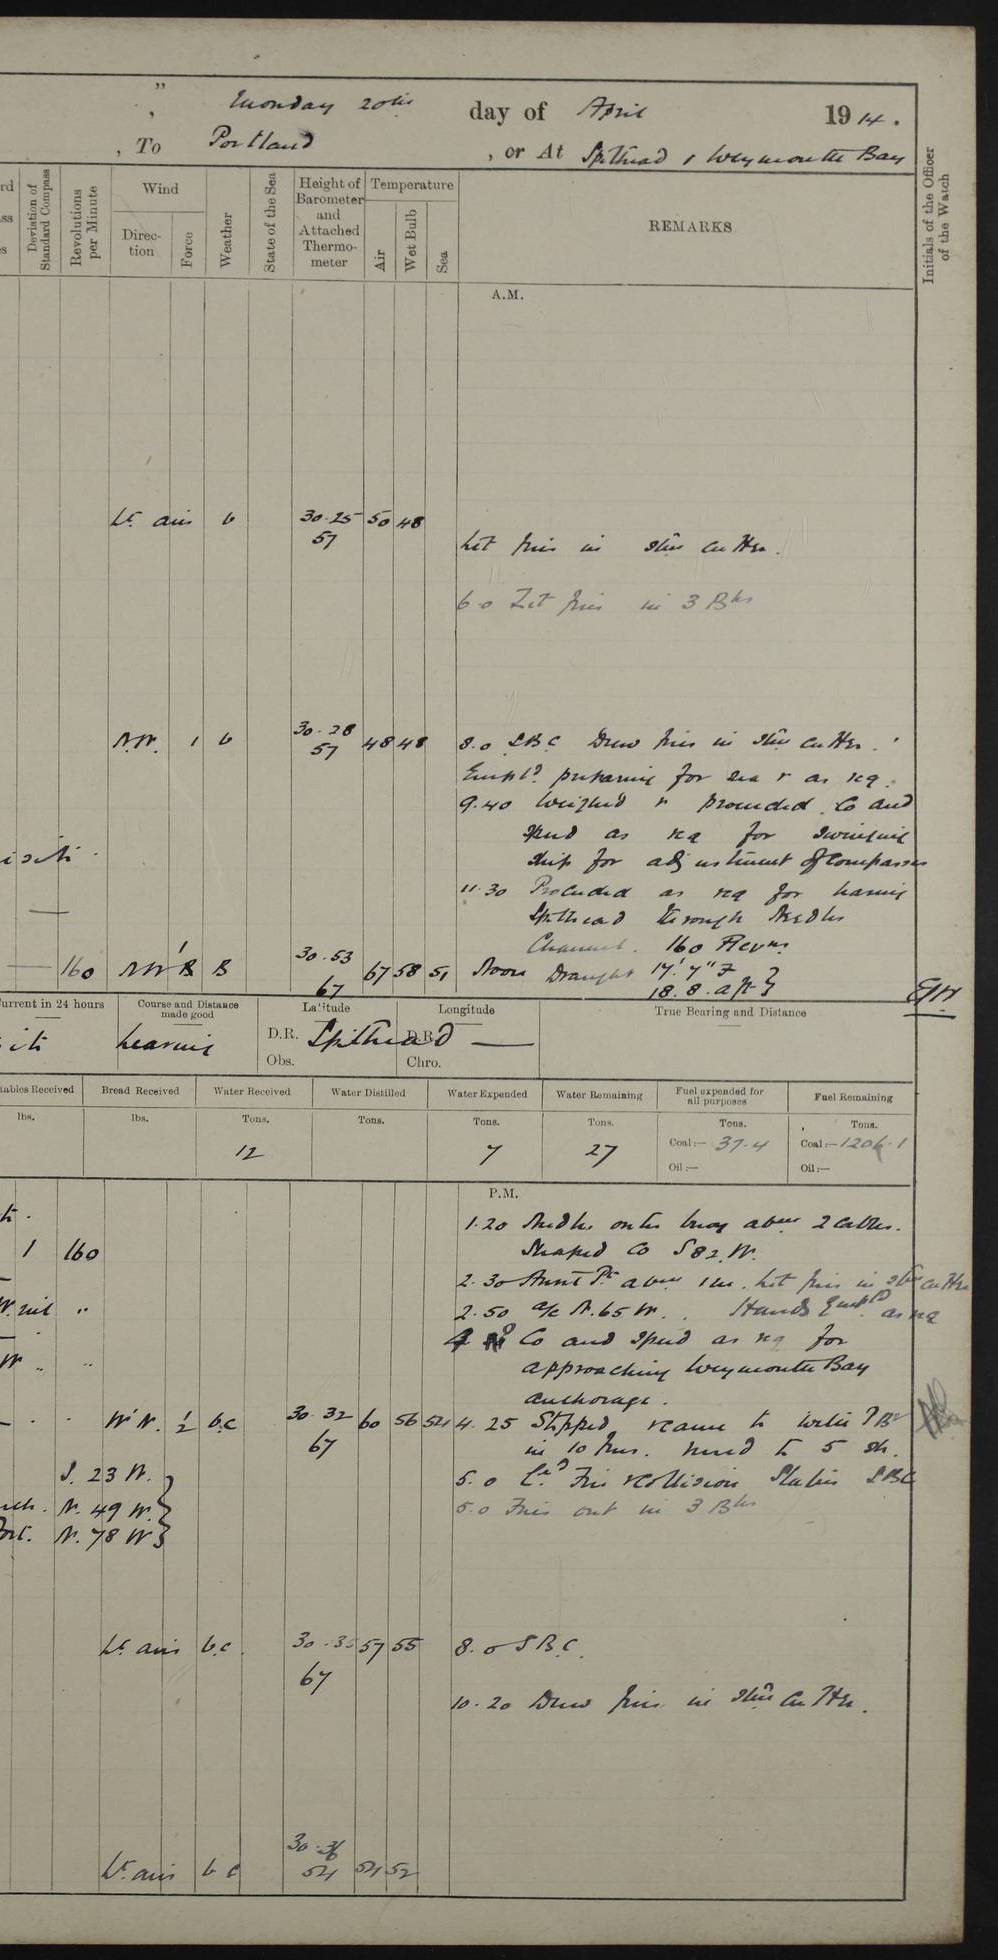 " Monday 20th day of April 1914.
, To Portland , or At Spithead & Weymouth Bay
Deviation of Standard Compass
Revolutions per Minute
Wind
Direction
Force
Weather
State of the Sea
Height of Barometer and Attached Thermometer
Temperature
Air
Wet Bulb
Sea
REMARKS
Initials of the Officer of the Watch
A.M.
Lt. airs b 30.25 50 48
57
Lit fires in Stm cutter.
6.0 Lit fires in 3 Blrs
N.W. 1 b 30.28 48 48
57
8.0 S.B.C Drew fires in Stm cutter.
Empld. preparing for sea & as req.
9.40 Weighed & proceeded Co and
Speed as req for swinging
ship for adjustment of Compasses
11.30 Proceeded as req for leaving
Spithead through Needles
Channel. 160 Revns.
160 30.53 67 58 51
67
Noon Draught 17' 7" F
18. 8. aft
Current in 24 hours
Course and Distance made good
Latitude
Longitude
True Bearing and Distance
leaving
D.R. Spithead D.R. —
Obs. Chro.
tables Received
Bread Received
Water Received
Water Distilled
Water Expended
Water Remaining
Fuel expended for all purposes
Fuel Remaining
lbs. lbs. Tons. Tons. Tons. Tons. Tons. Tons.
12 7 27 Coal:— 37.4 Coal:— 1206.1
Oil:— Oil:—
P.M.
1.20 Needles outer buoy abeam 2 cables.
1 160
Shaped Co S 82 W.
2.30 Anvil Pt abeam 1 m. Lit fires in Stm cutter
2.50 a/c N. 65 W. Hands Empld as req
Co and Speed as req for
approaching Weymouth Bay
anchorage.
b.c 30.32 60 56 54
67
4.25 Stopped & came to with
in 10 fms. veered to 5 sh.
S. 23 W.
5.0 Fire & Collision Stations S.B.C
N. 49 W.
5.0 Fires out in 3 Blrs
N. 78 W
Lt. airs b.c. 30.35 57 55
67
8.0 S.B.C.
10.20 Drew fires in Stm Cutter.
Lt. airs b c 30.36 54 52
54